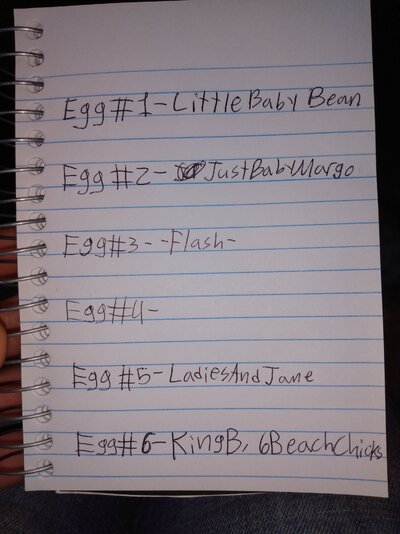 Egg #1- Little Baby Bean
Egg #2- JustBabyMargo
Egg#3- -Flash-
Egg#4-
Egg #5- LadiesAndJane
Egg#6- KingB, 6BeachChicks